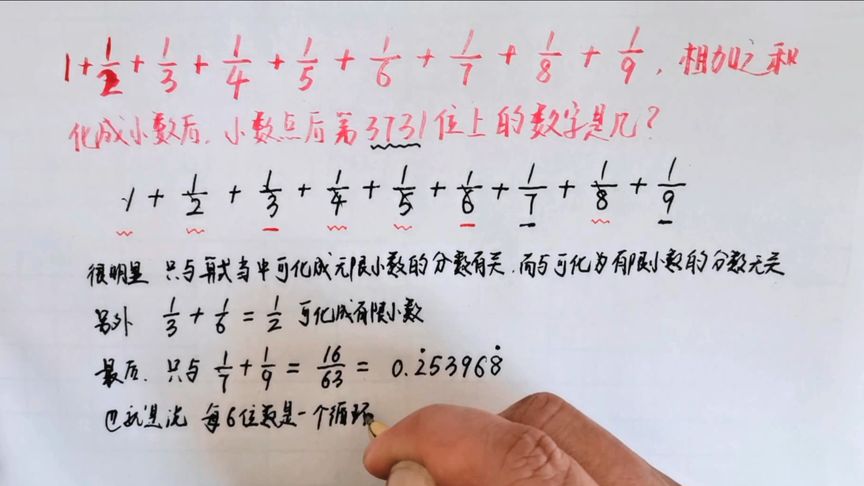 1+1/2+1/3+1/4+1/5+1/6+1/7+1/8+1/9,相加之和
化成小数后,小数点后第3731位上的数字是几?
1+1/2+1/3+1/4+1/5+1/6+1/7+1/8+1/9
很明显 只与算式当中可化成无限小数的分数有关,而与可化为有限小数的分数无关
另外 1/3+1/6=1/2 可化成有限小数
最后,只与 1/7+1/9=16/63=0.2̇53968̇
也就是说 每6位数是一个循环